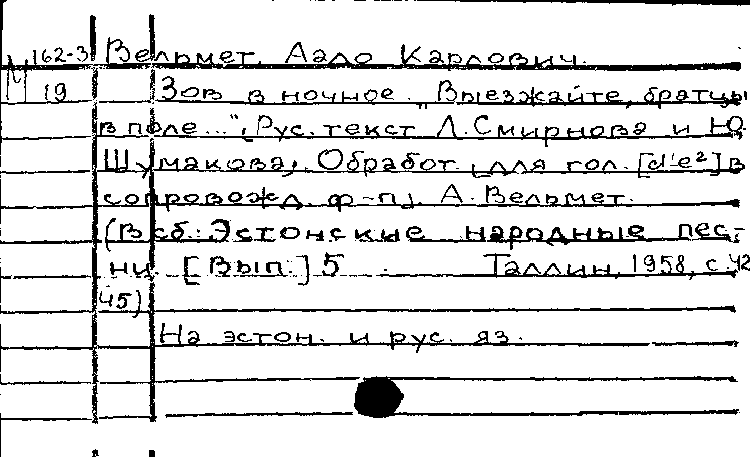 М 162-3 Вельмет, Аало Карлович.
19 Зов в ночное. "Выезжайте, братцы
в поле..." (Рус. текст Л. Смирнова и Ю.
Шумакова), Обработ. (для гол. [d'-e²] в
сопровожд. ф-п). А. Вельмет.
(В сб.: Эстонские народные пес-
ни. [Вып.] 5. Таллин, 1958, с. 42
45)
На эстон. и рус. яз.